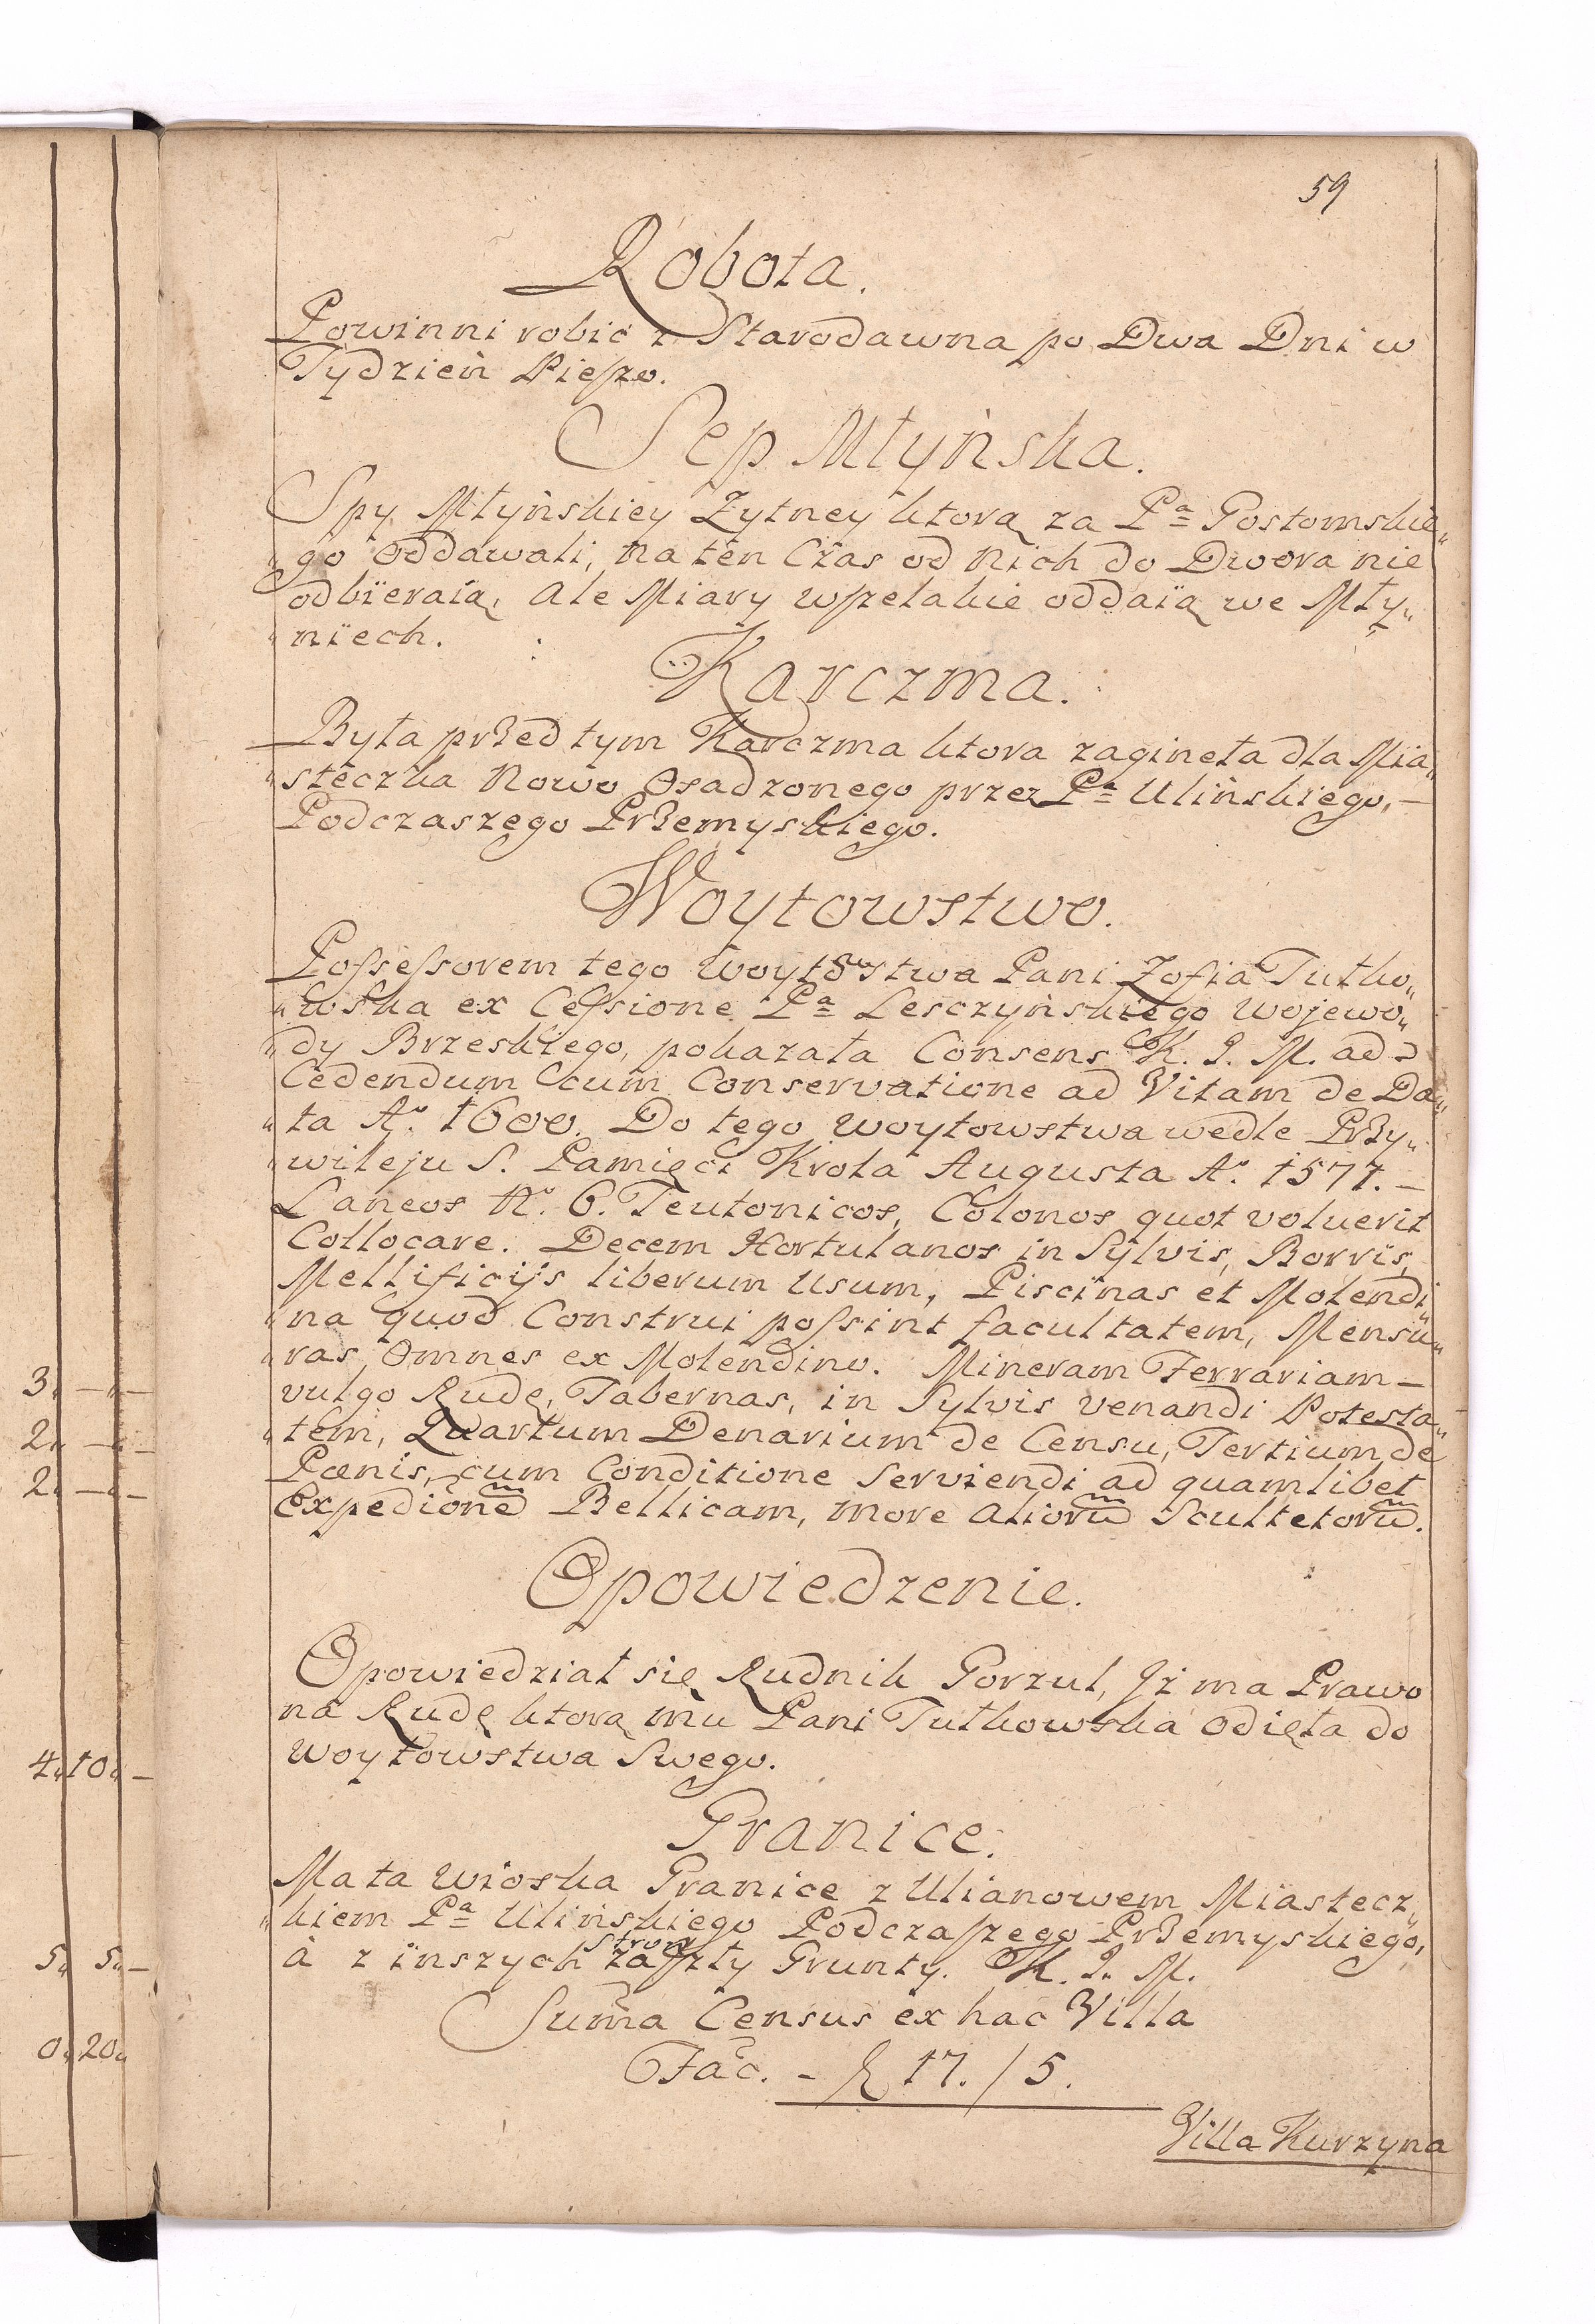 59
Robota.
Powinni robic z Starodawna po Dwa Dni w
Tydzień Pieſzo.
Sep Młyńska.
Spy Młyńskiey Żytney ktorą za Pª Gostomskie„
„go oddawali, na ten Czas od nich do Dwora nie
odbieraią, Ale Miary wſzelakie oddaią we Mły„
„niech.
Karczma.
Była przed tym Karczma ktora zagineła dla Mia„
„steczka Nowo Osadzonego przez Pª Ulińskiego, –
Podczaszego Przemyskiego.
Woytowstwo.
Poſseſsorem tego Woytowstwa Pani Zofia Tutko„
„wska ex Ceſsione Pª Lesczyńskiego Wojewo„
„dy Brzeskiego, pokazała Consens K. J. M. ad
Cedendum cum Conservatione ad Vitam de Da„
„ta Aº. 1600. Do tego Woytowstwa wedle Przy„
„wileju S. Pamięci Krola Augusta Aº. 1577. –
Laneos Nº. 6. Teutonicos, Colonos quot voluerit
Collocare. Decem Hortulanos in Sylvis, Borris,
Mellificijs liberum Usum, Piscinas et Molendi„
„na quod Construi poſsint facultatem, Mensu„
„ras Omnes ex Molendino. Mineram Ferrariam –
vulgo Rudę, Tabernas, in Sylvis venandi Potesta„
„tem, Quartum Denarium de Censu, Tertium de
Pœnis, cum Conditione Serviendi ad quamlibet
Expedionem̃ Bellicam, more Aliorum̃ Scultetorum̃.
Opowiedzenie.
Opowiedział się Rudnik Gorzul, Jż ma Prawo
na Rudę ktorą mu Pani Tutkowska odięła do
Woytowstwa Swego.
Granice.
Ma ta Wioska Granice z Ulianowem Miastecz„
„kiem Pª Ulińskiego Podczaſzego Przemyskiego,
strony
à z inszych zaſzły Grunty. K. J. M.
Sum̃a Census ex hac Villa
Fac. – ƒ 17. / 5.
Villa Kurzyna
3„ – „ –
2„ – „ –
2„ – „ –
4„ 10„ –
5„ 5„ –
0„ 20„